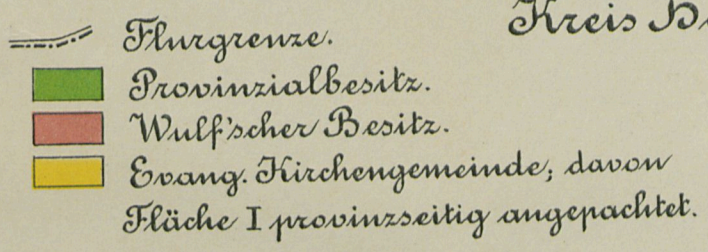 Kreis
Flurgrenze.
Provinzialbesitz.
Wulf'scher Besitz.
Evang. Kirchengemeinde; davon
Fläche I provinzseitig angepachtet.